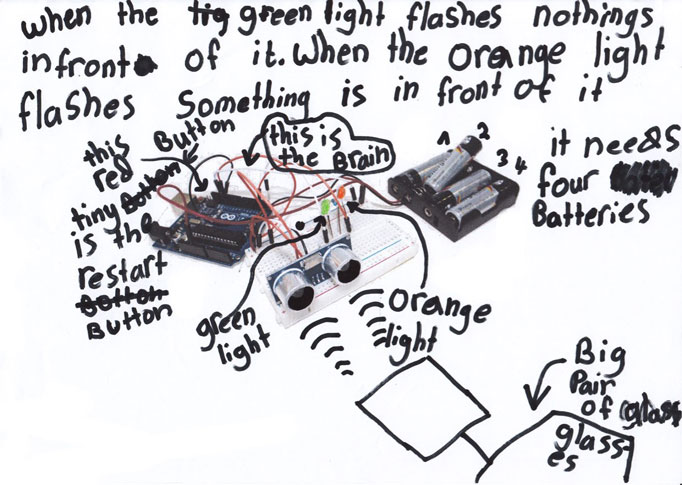 when the green light flashes nothings
infront of it. when the orange light
flashes something is in front of it
this
red
tiny
is the
restart
Button
Button
this is
the Brain
1 2 3 4
it needs
four
Batteries
green
light
orange
light
Big
Pair
of glass
glass-
es